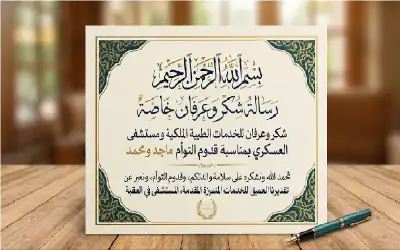 بسم الله الرحمن الرحيم
رسالة شكر وعرفان خاصة
شكر وعرفان للخدمات الطبية الملكية ومستشفى
العسكري بمناسبة قدوم التوأم ماجد ومحمد
نحمد الله ونشكره على سلامة والدتكم، وقدوم التوأم، ونعبر عن
تقديرنا العميق للخدمات المتميزة المقدمة، المستشفى في العقبة